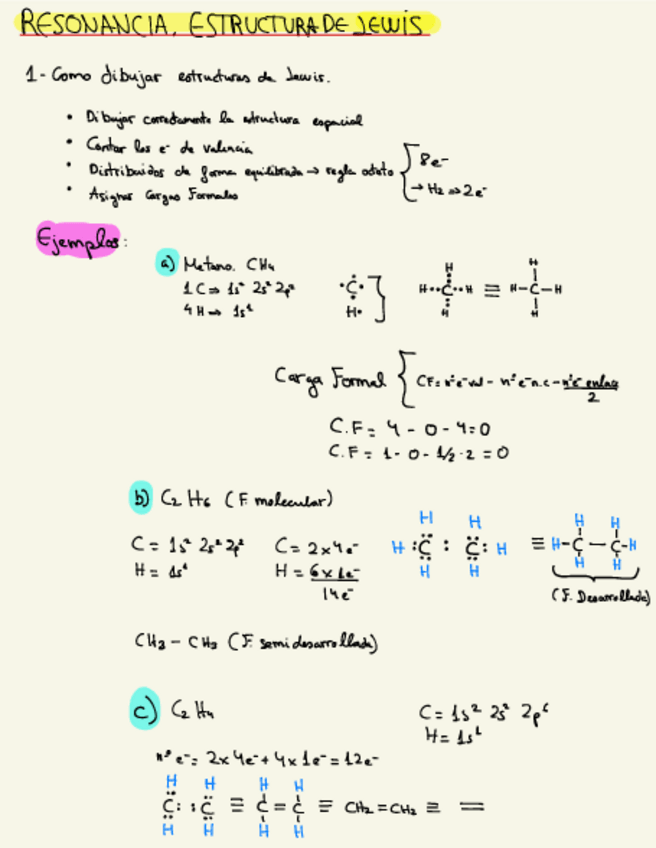 RESONANCIA. ESTRUCTURA DE LEWIS
1- Como dibujar estructuras de Lewis.
• Dibujar correctamente la estructura espacial
• Contar los e⁻ de valencia
• Distribuidos de forma equilibrada → regla octeto { 8e⁻
→ H₂ => 2e⁻
• Asignar Cargas Formales
Ejemplos:
a) Metano. CH₄
1 C => 1s² 2s² 2p²
4 H → 1s¹
·C· H·
H H··C··H H ≡ H H-C-H H
Carga Formal { CF = nºe⁻val - nºe⁻n.c - nºe⁻ enlace / 2
C.F = 4 - 0 - 4 = 0
C.F = 1 - 0 - 1/2 · 2 = 0
b) C₂H₆ (F. molecular)
C = 1s² 2s² 2p² C = 2x4e⁻
H = 1s¹ H = 6x1e⁻
14e⁻
H H
H :C : C: H ≡ H-C-C-H
H H
(F. Desarrollada)
CH₃ - CH₃ (F. semidesarrollada)
c) C₂H₄
C = 1s² 2s² 2p⁶
H = 1s¹
nº e⁻ = 2x4e⁻ + 4x1e⁻ = 12e⁻
H H H H
C: :C ≡ C = C ≡ CH₂ = CH₂ ≡ =
H H H H